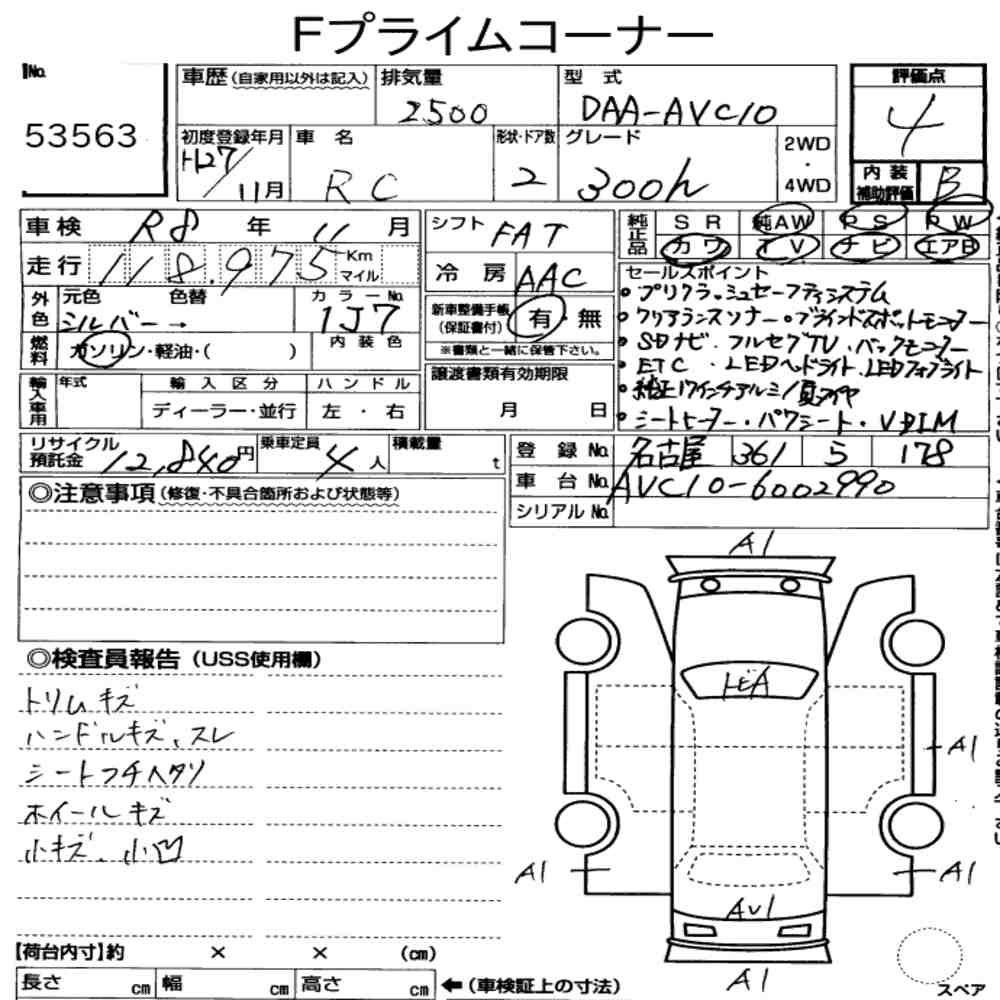 Fプライムコーナー
No.
53563
車歴 (自家用以外は記入)
排気量
2500
型 式
DAA-AVC10
評価点
4
初度登録年月
H27/11月
車 名
RC
形状・ドア数
2
グレード
300h
2WD
・
4WD
内 装
補助評価
B
車検 R8 年 11 月
走行 118,975 Km
マイル
外色
元色 色替
シルバー→
カラーNo.
1J7
燃料
ガソリン・軽油・( )
内 装 色
輸入車用
年式
輸 入 区 分
ディーラー・並行
ハ ン ド ル
左 ・ 右
シフト FAT
冷 房 AAC
新車整備手帳
(保証書付)
有・無
※書類と一緒に保管下さい。
譲渡書類有効期限
月 日
純正品
S R 純AW P S P W
カワ T V ナビ エアB
セールスポイント
・プリクラッシュセーフティシステム
・クリアランスソナー・ブラインドスポットモニター
・SDナビ・フルセグTV・バックモニター
・ETC・LEDヘッドライト・LEDフォグライト
・純正17インチアルミ/夏タイヤ
・シートヒーター・パワーシート・VDIM
リサイクル
預託金 12,840円
乗車定員 4人
積載量 t
登 録 No. 名古屋 361 ら 178
車 台 No. AVC10-6002990
シリアル No.
◎注意事項 (修復・不具合箇所および状態等)
◎検査員報告 (USS使用欄)
トリムキズ
ハンドルキズ、スレ
シートフチヘタリ
ホイールキズ
小キズ、小凹
A1
A1
A1
A1
AU1
A1
【荷台内寸】約 × × (cm)
長さ cm 幅 cm 高さ cm ←(車検証上の寸法)
スペア